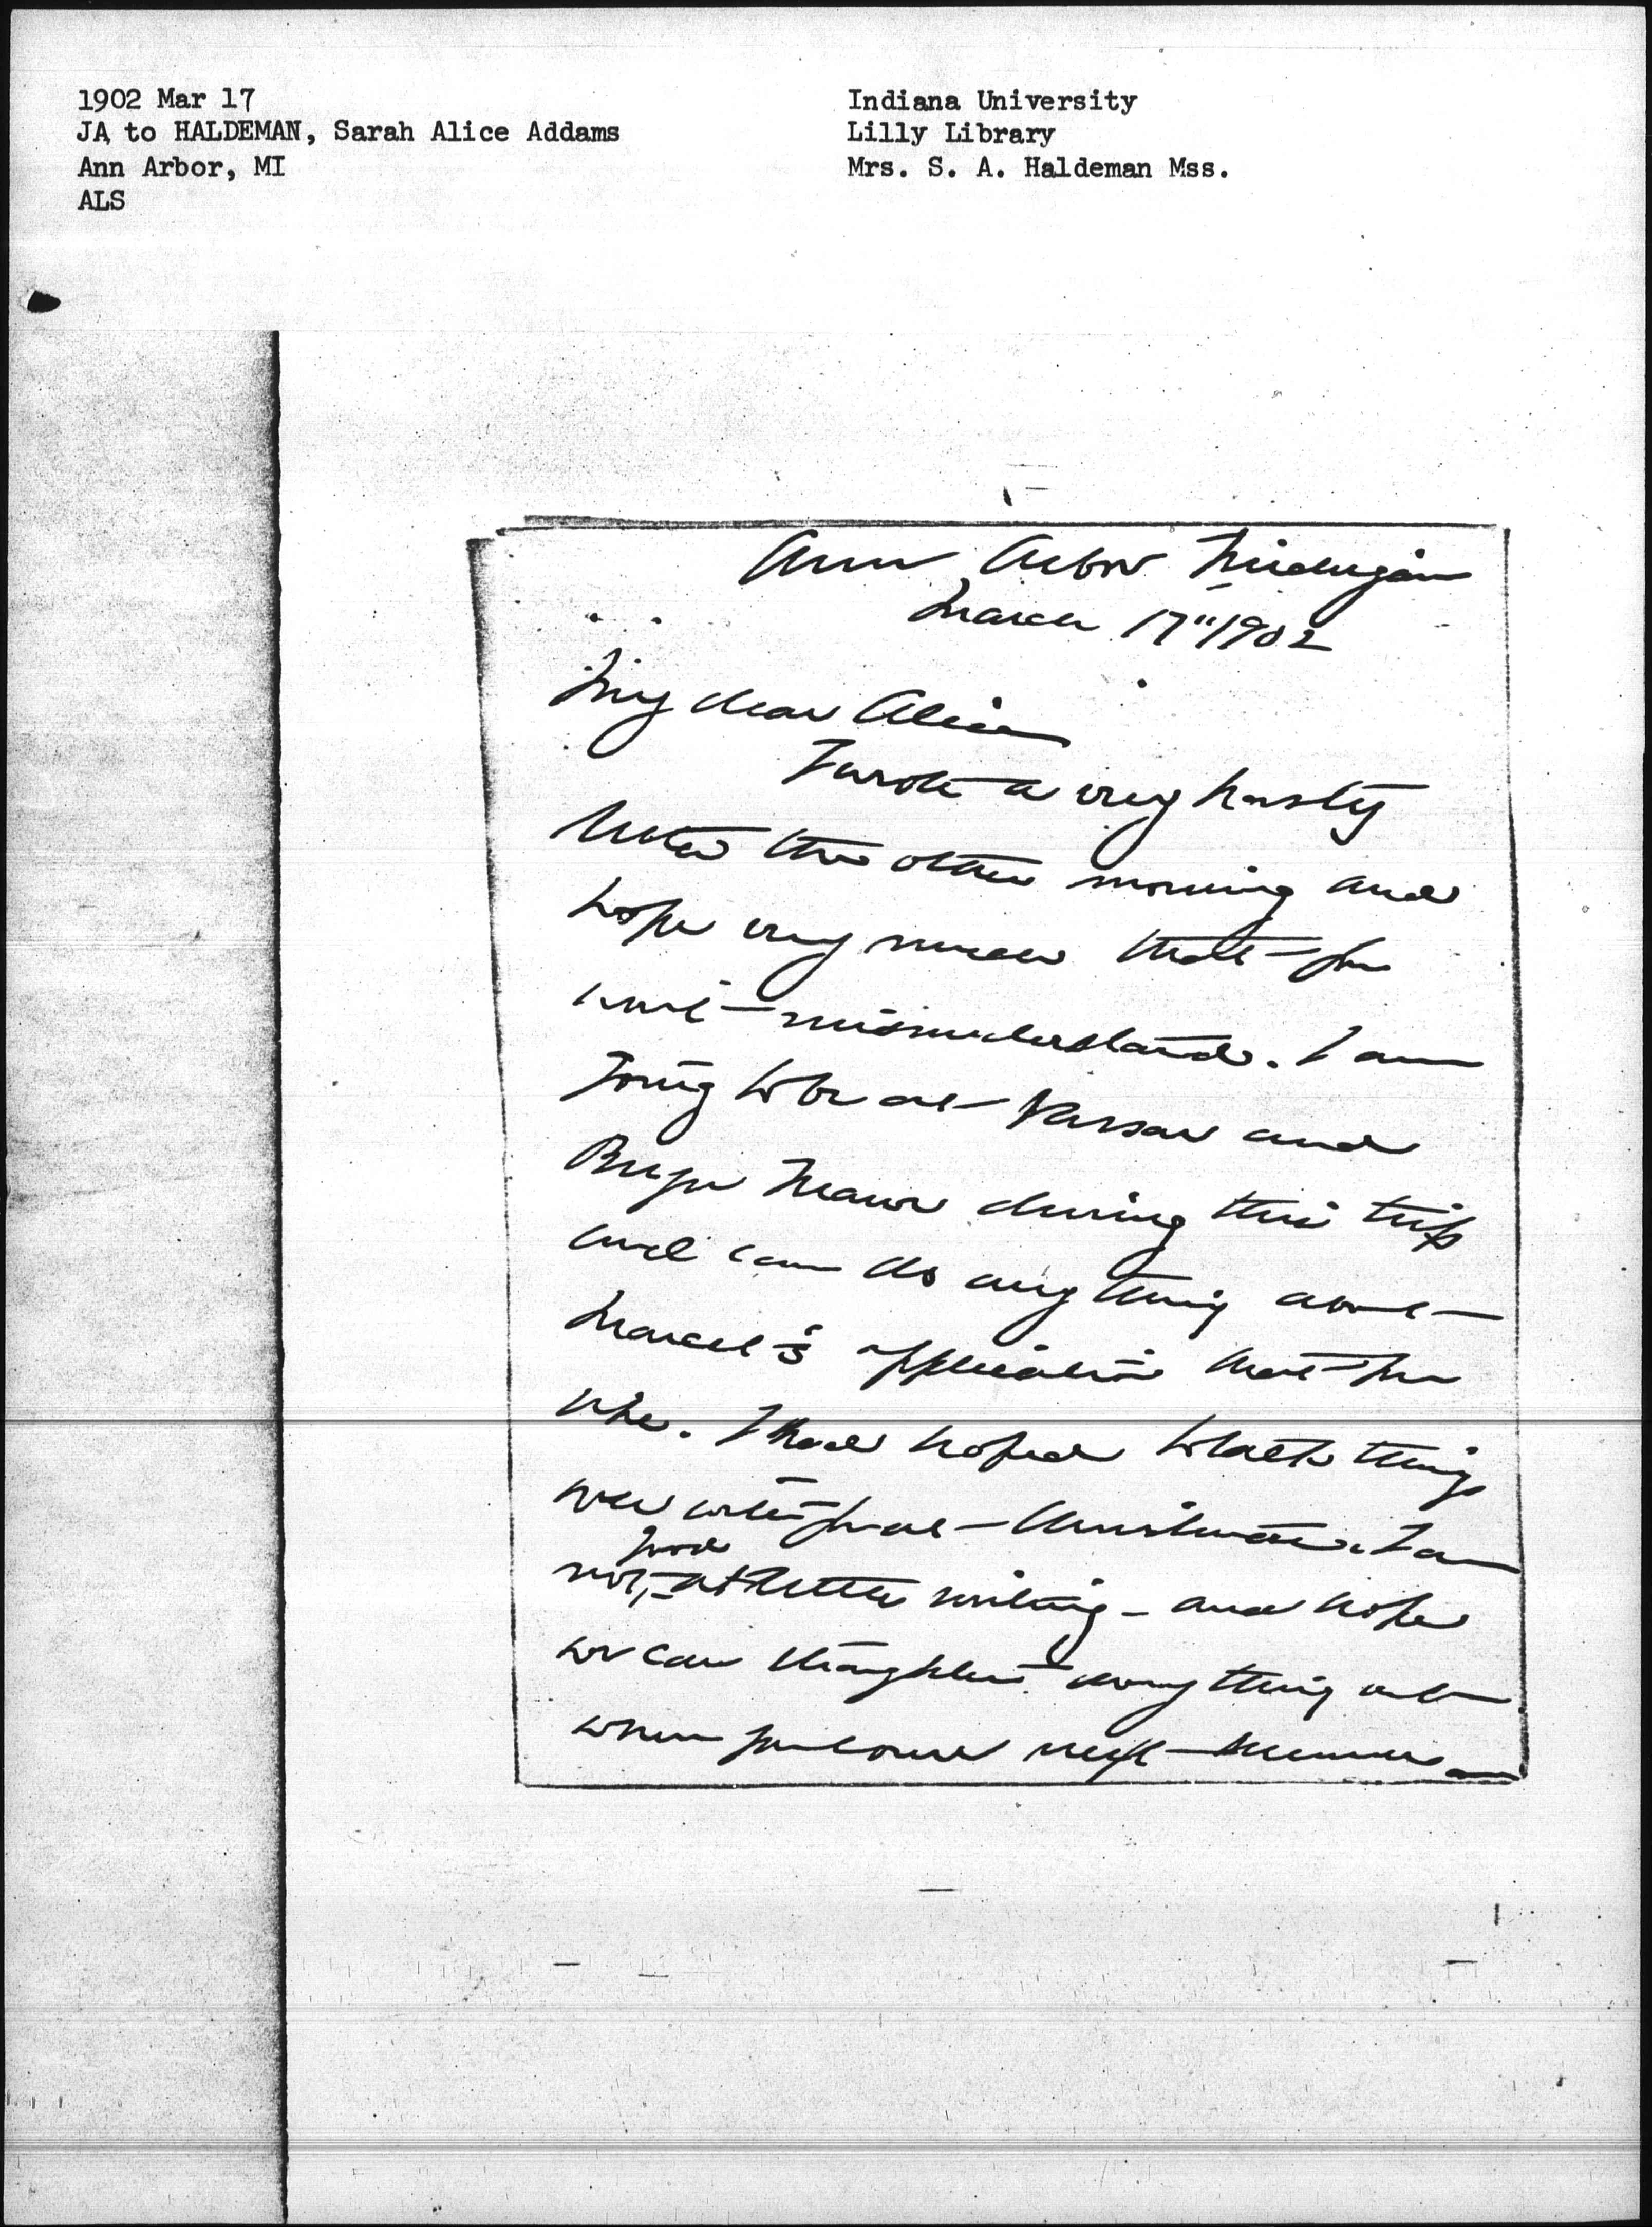 1902 Mar 17
JA to HALDEMAN, Sarah Alice Addams
Ann Arbor, MI
ALS
Indiana University
Lilly Library
Mrs. S. A. Haldeman Mss.
Ann Arbor Michigan
March 17" 1902
My dear Alice
I wrote a very hasty
letter the other morning and
hope very much that you
won't misunderstand. I am
going to be at Vassar and
Bryn Mawr during this trip
and can do any thing about
Marcet's application that you
like. I had hoped to talk things
over with you at Christmas. I am
not good at letter writing - and hope
we can straighten every thing out
when you come next summer